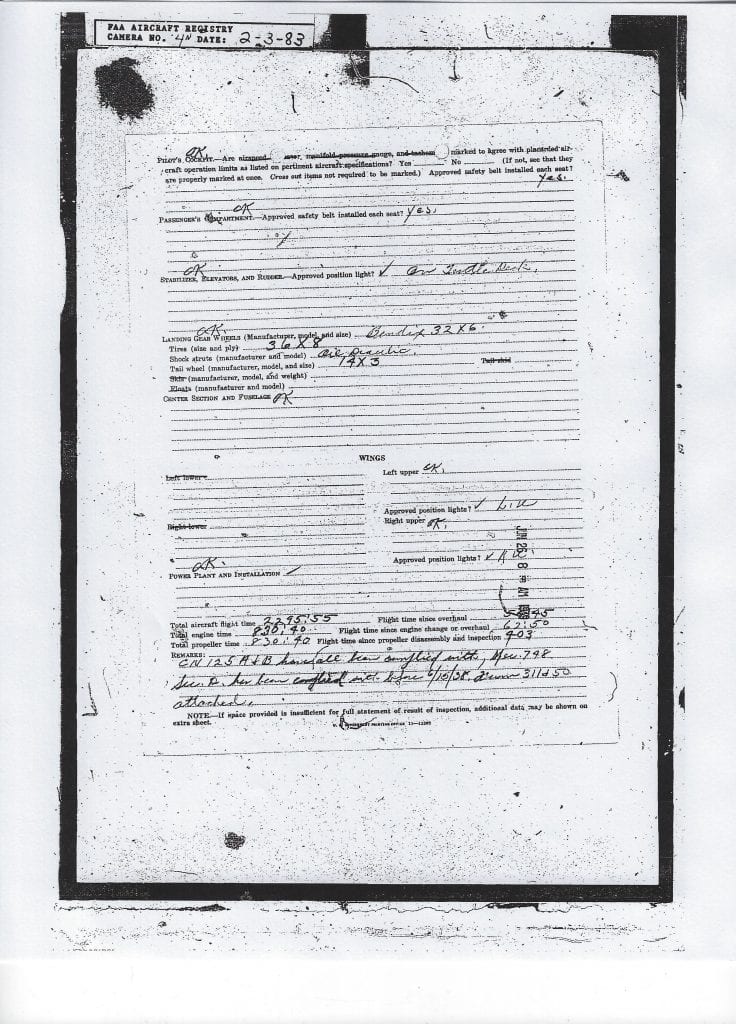 FAA AIRCRAFT REGISTRY
CAMERA NO. 4N DATE: 2-3-83
OK.
PILOT'S COCKPIT.—Are airspeed meter, manifold pressure gauge, and tachom marked to agree with placarded air-
craft operation limits as listed on pertinent aircraft specifications? Yes No (If not, see that they
are properly marked at once. Cross out items not required to be marked.) Approved safety belt installed each seat?
Yes.
OK
PASSENGER'S COMPARTMENT.—Approved safety belt installed each seat? Yes.
OK
STABILIZER, ELEVATORS, AND RUDDER.—Approved position light? ✓ on Turtle Deck.
OK.
LANDING GEAR WHEELS (Manufacturer, model, and size) Bendix 32X6.
Tires (size and ply) 36X8
Shock struts (manufacturer and model) Oil Draulic.
Tail wheel (manufacturer, model, and size) 14X3 Tail skid
Skis (manufacturer, model, and weight)
Floats (manufacturer and model)
CENTER SECTION AND FUSELAGE OK
WINGS
Left lower Left upper OK.
Approved position lights? ✓
Right lower Right upper OK.
Approved position lights? ✓
OK.
POWER PLANT AND INSTALLATION
JUN 26
Total aircraft flight time 2295:55 Flight time since overhaul 45
Total engine time 830:40 Flight time since engine change or overhaul 67:50
Total propeller time 830:40 Flight time since propeller disassembly and inspection 403
REMARKS: CN 125 A & B have all been complied with, 798
Sec. A. has been complied with 6/15/38. 311 & 50
attached.
NOTE.—If space provided is insufficient for full statement of result of inspection, additional data may be shown on
extra sheet.
U. S. GOVERNMENT PRINTING OFFICE